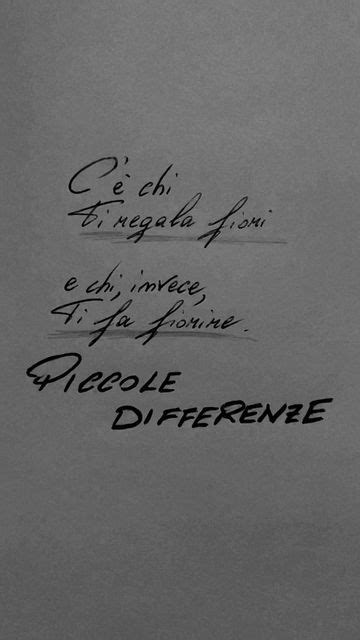 C'è chi
ti regala fiori
e chi, invece,
ti fa fiorire.
PICCOLE
DIFFERENZE